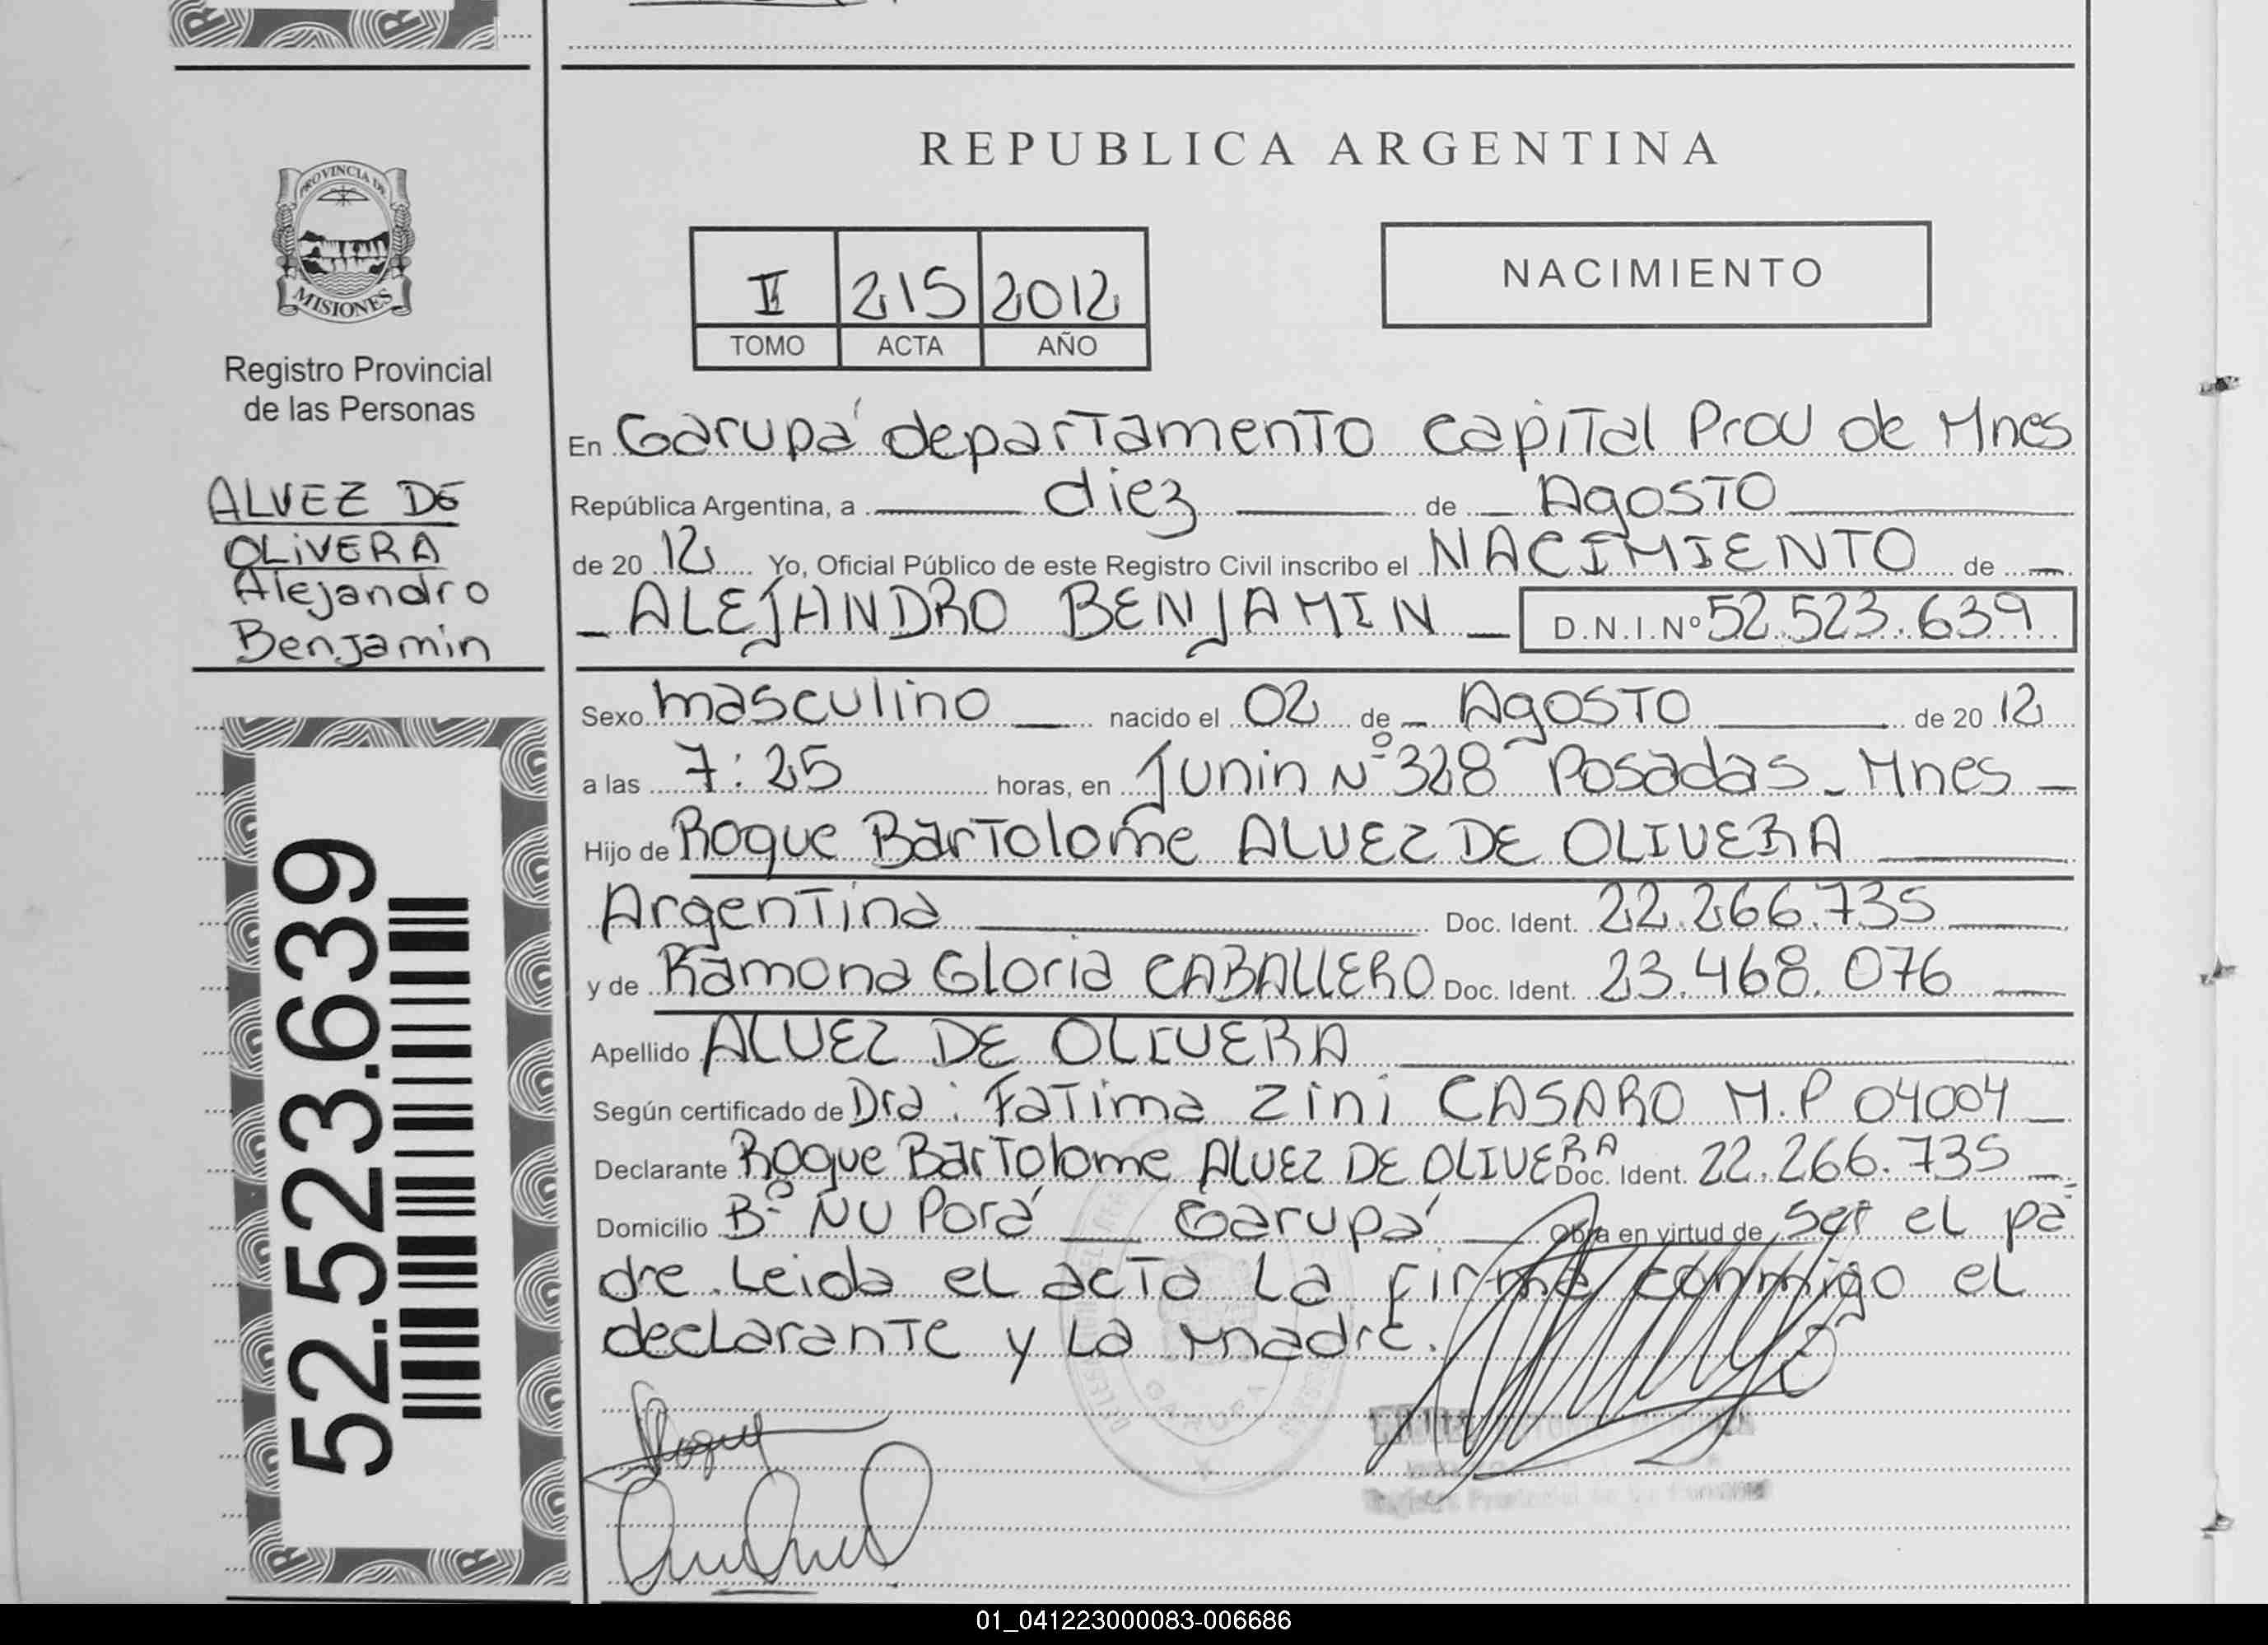 REPUBLICA ARGENTINA
PROVINCIA DE
MISIONES
Registro Provincial
de las Personas
ALVEZ DE
OLIVERA
Alejandro
Benjamin
52.523.639
II 215 2012
TOMO ACTA AÑO
NACIMIENTO
En Garupá departamento Capital Prov de Mnes
República Argentina, a diez de Agosto
de 2012 Yo, Oficial Público de este Registro Civil inscribo el NACIMIENTO de
ALEJANDRO BENJAMIN D.N.I.Nº 52.523.639
Sexo masculino nacido el 02 de Agosto de 2012
a las 7:25 horas, en Junin Nº 328 Posadas - Mnes
Hijo de Roque Bartolome ALVEZ DE OLIVERA
Argentina Doc. Ident. 22.266.735
y de Ramona Gloria CABALLERO Doc. Ident. 23.468.076
Apellido ALVEZ DE OLIVERA
Según certificado de Dra: Fatima Zini CASARO M.P 04004
Declarante Roque Bartolome ALVEZ DE OLIVERA Doc. Ident. 22.266.735
Domicilio Bº ÑU Porá Garupá Obra en virtud de ser el pa
dre. Leida el acta La firma conmigo el
declarante y La madre.
Roque
GARUPA
01_041223000083-006686